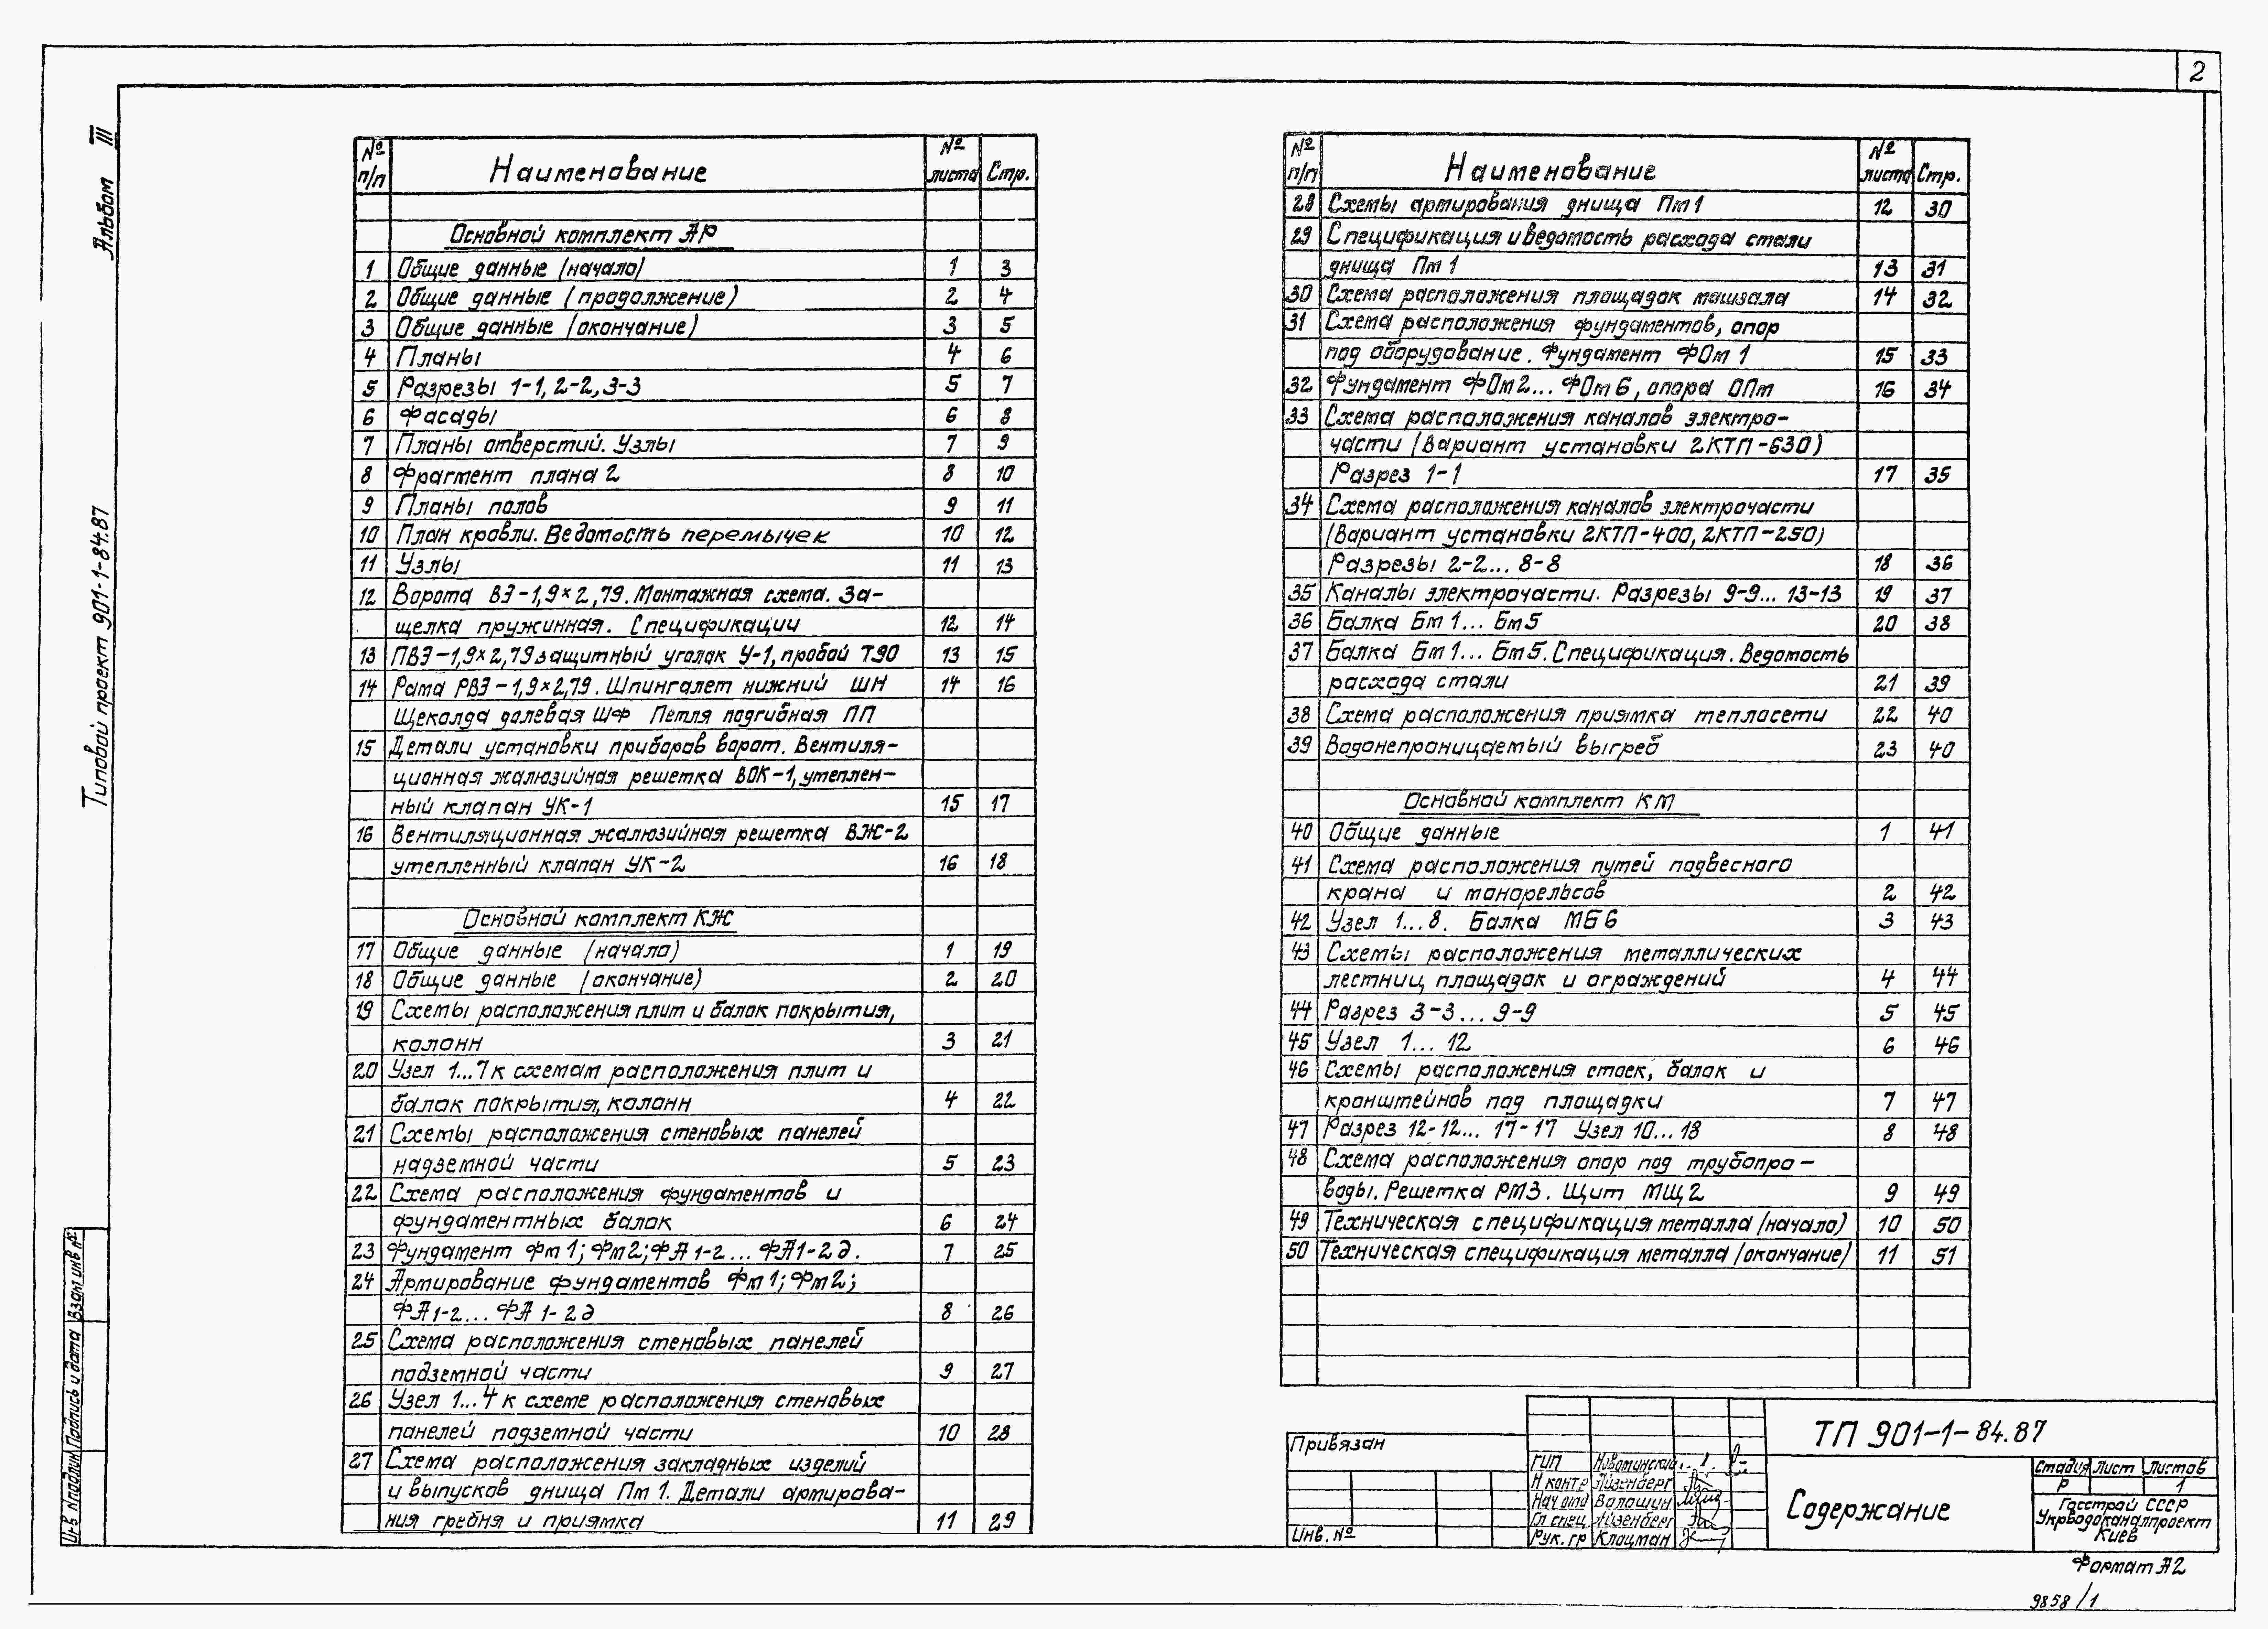 2
Альбом III
Типовой проект 901-1-84.87
№ п/п Наименование № листа Стр.
Основной комплект АР
1 Общие данные (начало) 1 3
2 Общие данные (продолжение) 2 4
3 Общие данные (окончание) 3 5
4 Планы 4 6
5 Разрезы 1-1, 2-2, 3-3 5 7
6 Фасады 6 8
7 Планы отверстий. Узлы 7 9
8 Фрагмент плана 2 8 10
9 Планы полов 9 11
10 План кровли. Ведомость перемычек 10 12
11 Узлы 11 13
12 Ворота ВЭ-1,9×2,79. Монтажная схема. За-
щелка пружинная. Спецификации 12 14
13 ПВЭ-1,9×2,79 защитный уголок У-1, пробой Т90 13 15
14 Рама РВЭ-1,9×2,79. Шпингалет нижний ШН 14 16
Щеколда долевая ШФ Петля подгибная ПП
15 Детали установки приборов ворот. Вентиля-
ционная жалюзийная решетка ВОК-1, утеплен-
ный клапан УК-1 15 17
16 Вентиляционная жалюзийная решетка ВЖ-2
утепленный клапан УК-2 16 18
Основной комплект КЖ
17 Общие данные (начало) 1 19
18 Общие данные (окончание) 2 20
19 Схемы расположения плит и балок покрытия,
колонн 3 21
20 Узел 1...7 к схемам расположения плит и
балок покрытия, колонн 4 22
21 Схемы расположения стеновых панелей
надземной части 5 23
22 Схема расположения фундаментов и
фундаментных балок 6 24
23 Фундамент Фм1; Фм2; ФА1-2... ФА1-2д. 7 25
24 Армирование фундаментов Фм1; Фм2;
ФА1-2... ФА1-2д 8 26
25 Схема расположения стеновых панелей
подземной части 9 27
26 Узел 1...4 к схеме расположения стеновых
панелей подземной части 10 28
27 Схема расположения закладных изделий
и выпусков днища Пм1. Детали армирова-
ния гребня и приямка 11 29
№ п/п Наименование № листа Стр.
28 Схемы армирования днища Пм1 12 30
29 Спецификация и ведомость расхода стали
днища Пм1 13 31
30 Схема расположения площадок машзала 14 32
31 Схема расположения фундаментов, опор
под оборудование. Фундамент ФОм1 15 33
32 Фундамент ФОм2... ФОм6, опора ОПм 16 34
33 Схема расположения каналов электро-
части (Вариант установки 2КТП-630)
Разрез 1-1 17 35
34 Схема расположения каналов электрочасти
(Вариант установки 2КТП-400, 2КТП-250)
Разрезы 2-2... 8-8 18 36
35 Каналы электрочасти. Разрезы 9-9... 13-13 19 37
36 Балка Бм1... Бм5 20 38
37 Балка Бм1... Бм5. Спецификация. Ведомость
расхода стали 21 39
38 Схема расположения приямка теплосети 22 40
39 Водонепроницаемый выгреб 23 40
Основной комплект КМ
40 Общие данные 1 41
41 Схема расположения путей подвесного
крана и монорельсов 2 42
42 Узел 1...8. Балка МБ6 3 43
43 Схемы расположения металлических
лестниц площадок и ограждений 4 44
44 Разрез 3-3... 9-9 5 45
45 Узел 1... 12 6 46
46 Схемы расположения стоек, балок и
кронштейнов под площадки 7 47
47 Разрез 12-12... 17-17 Узел 10... 18 8 48
48 Схема расположения опор под трубопро-
воды. Решетка РМ3. Щит МЩ2 9 49
49 Техническая спецификация металла (начало) 10 50
50 Техническая спецификация металла (окончание) 11 51
Инв № подлин Подпись и дата Взам инв №
Привязан
Инв. №
ГИП
Н контр Айзенберг
Нач отд Волошин
Гл спец Айзенберг
Рук. гр Клоцман
ТП 901-1-84.87
Содержание
Стадия Лист Листов
Р 1
Госстрой СССР
Укрводоканалпроект
Киев
Формат А2
9858/1